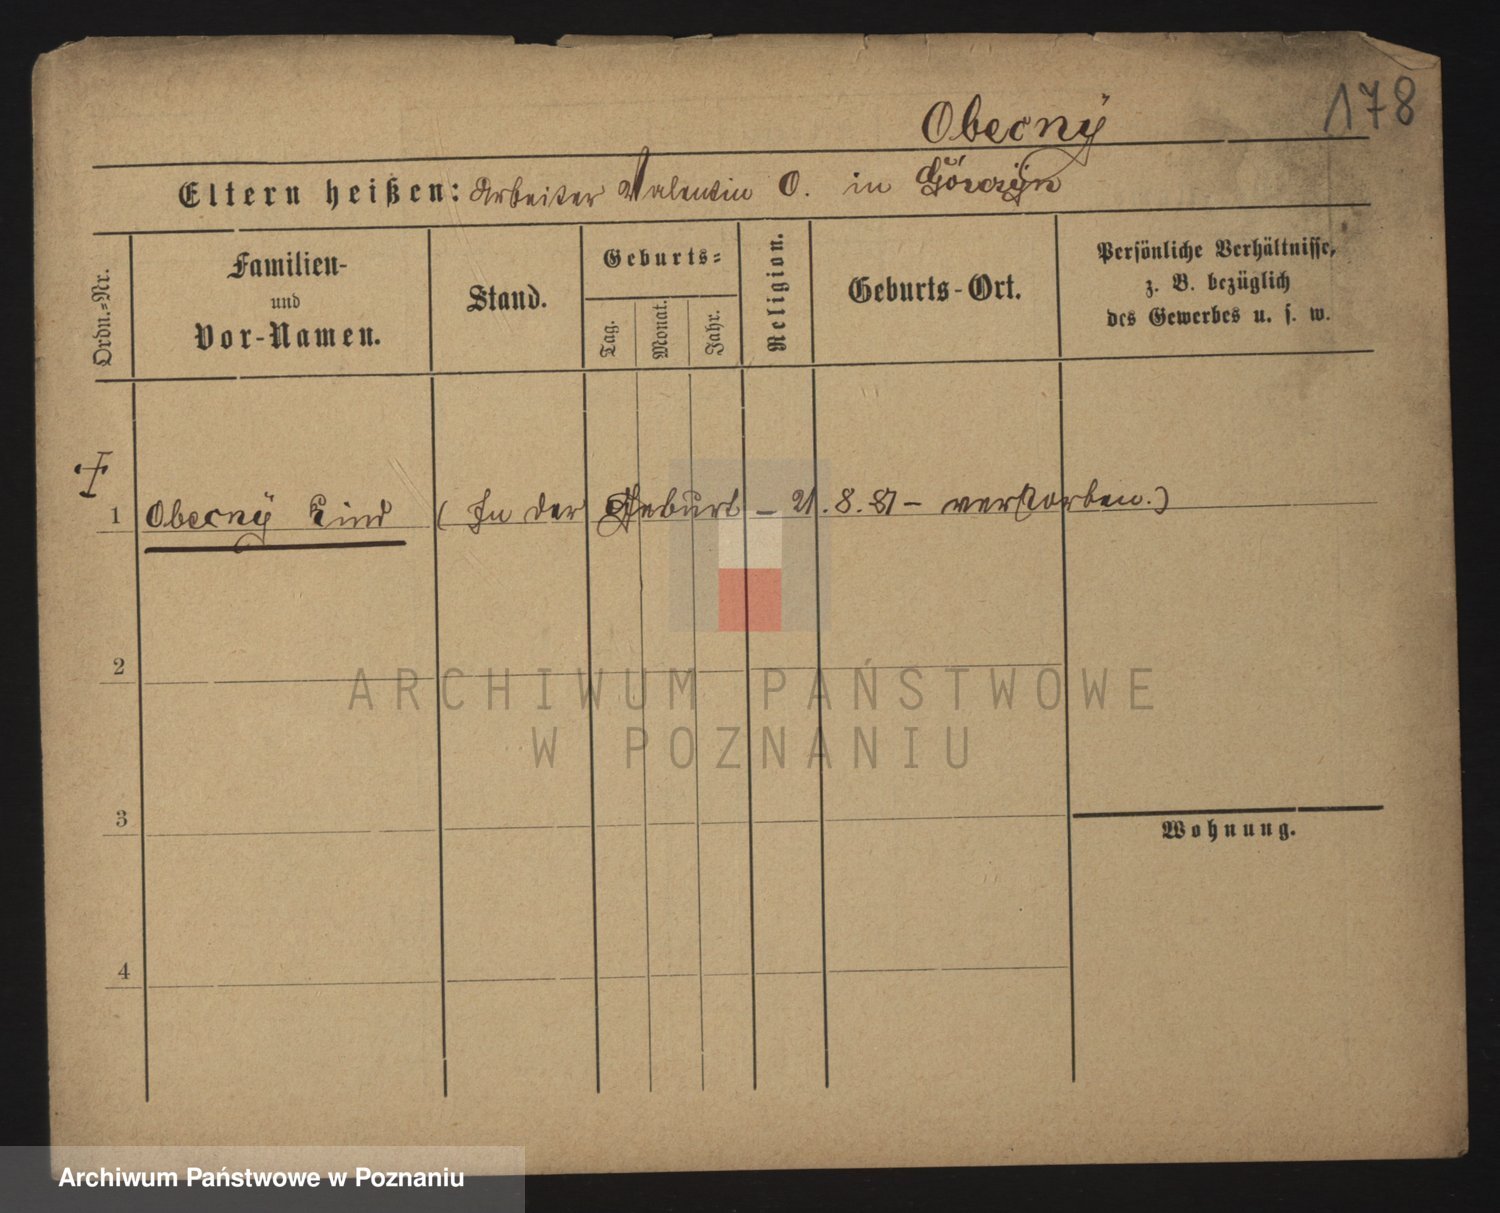 178
Obecnÿ
Eltern heißen: Arbeiter Valentin O. in Górczÿn
Ordn.-Nr.
Familien-
und
Vor-Namen.
Stand.
Geburts-
Tag.
Monat.
Jahr.
Religion.
Geburts-Ort.
Persönliche Verhältnisse,
z. B. bezüglich
des Gewerbes u. s. w.
1 Obecnÿ Kind (In der Geburt – 21.8.81 – verstorben.)
2
ARCHIWUM PAŃSTWOWE
W POZNANIU
3
Wohnung.
4
Archiwum Państwowe w Poznaniu